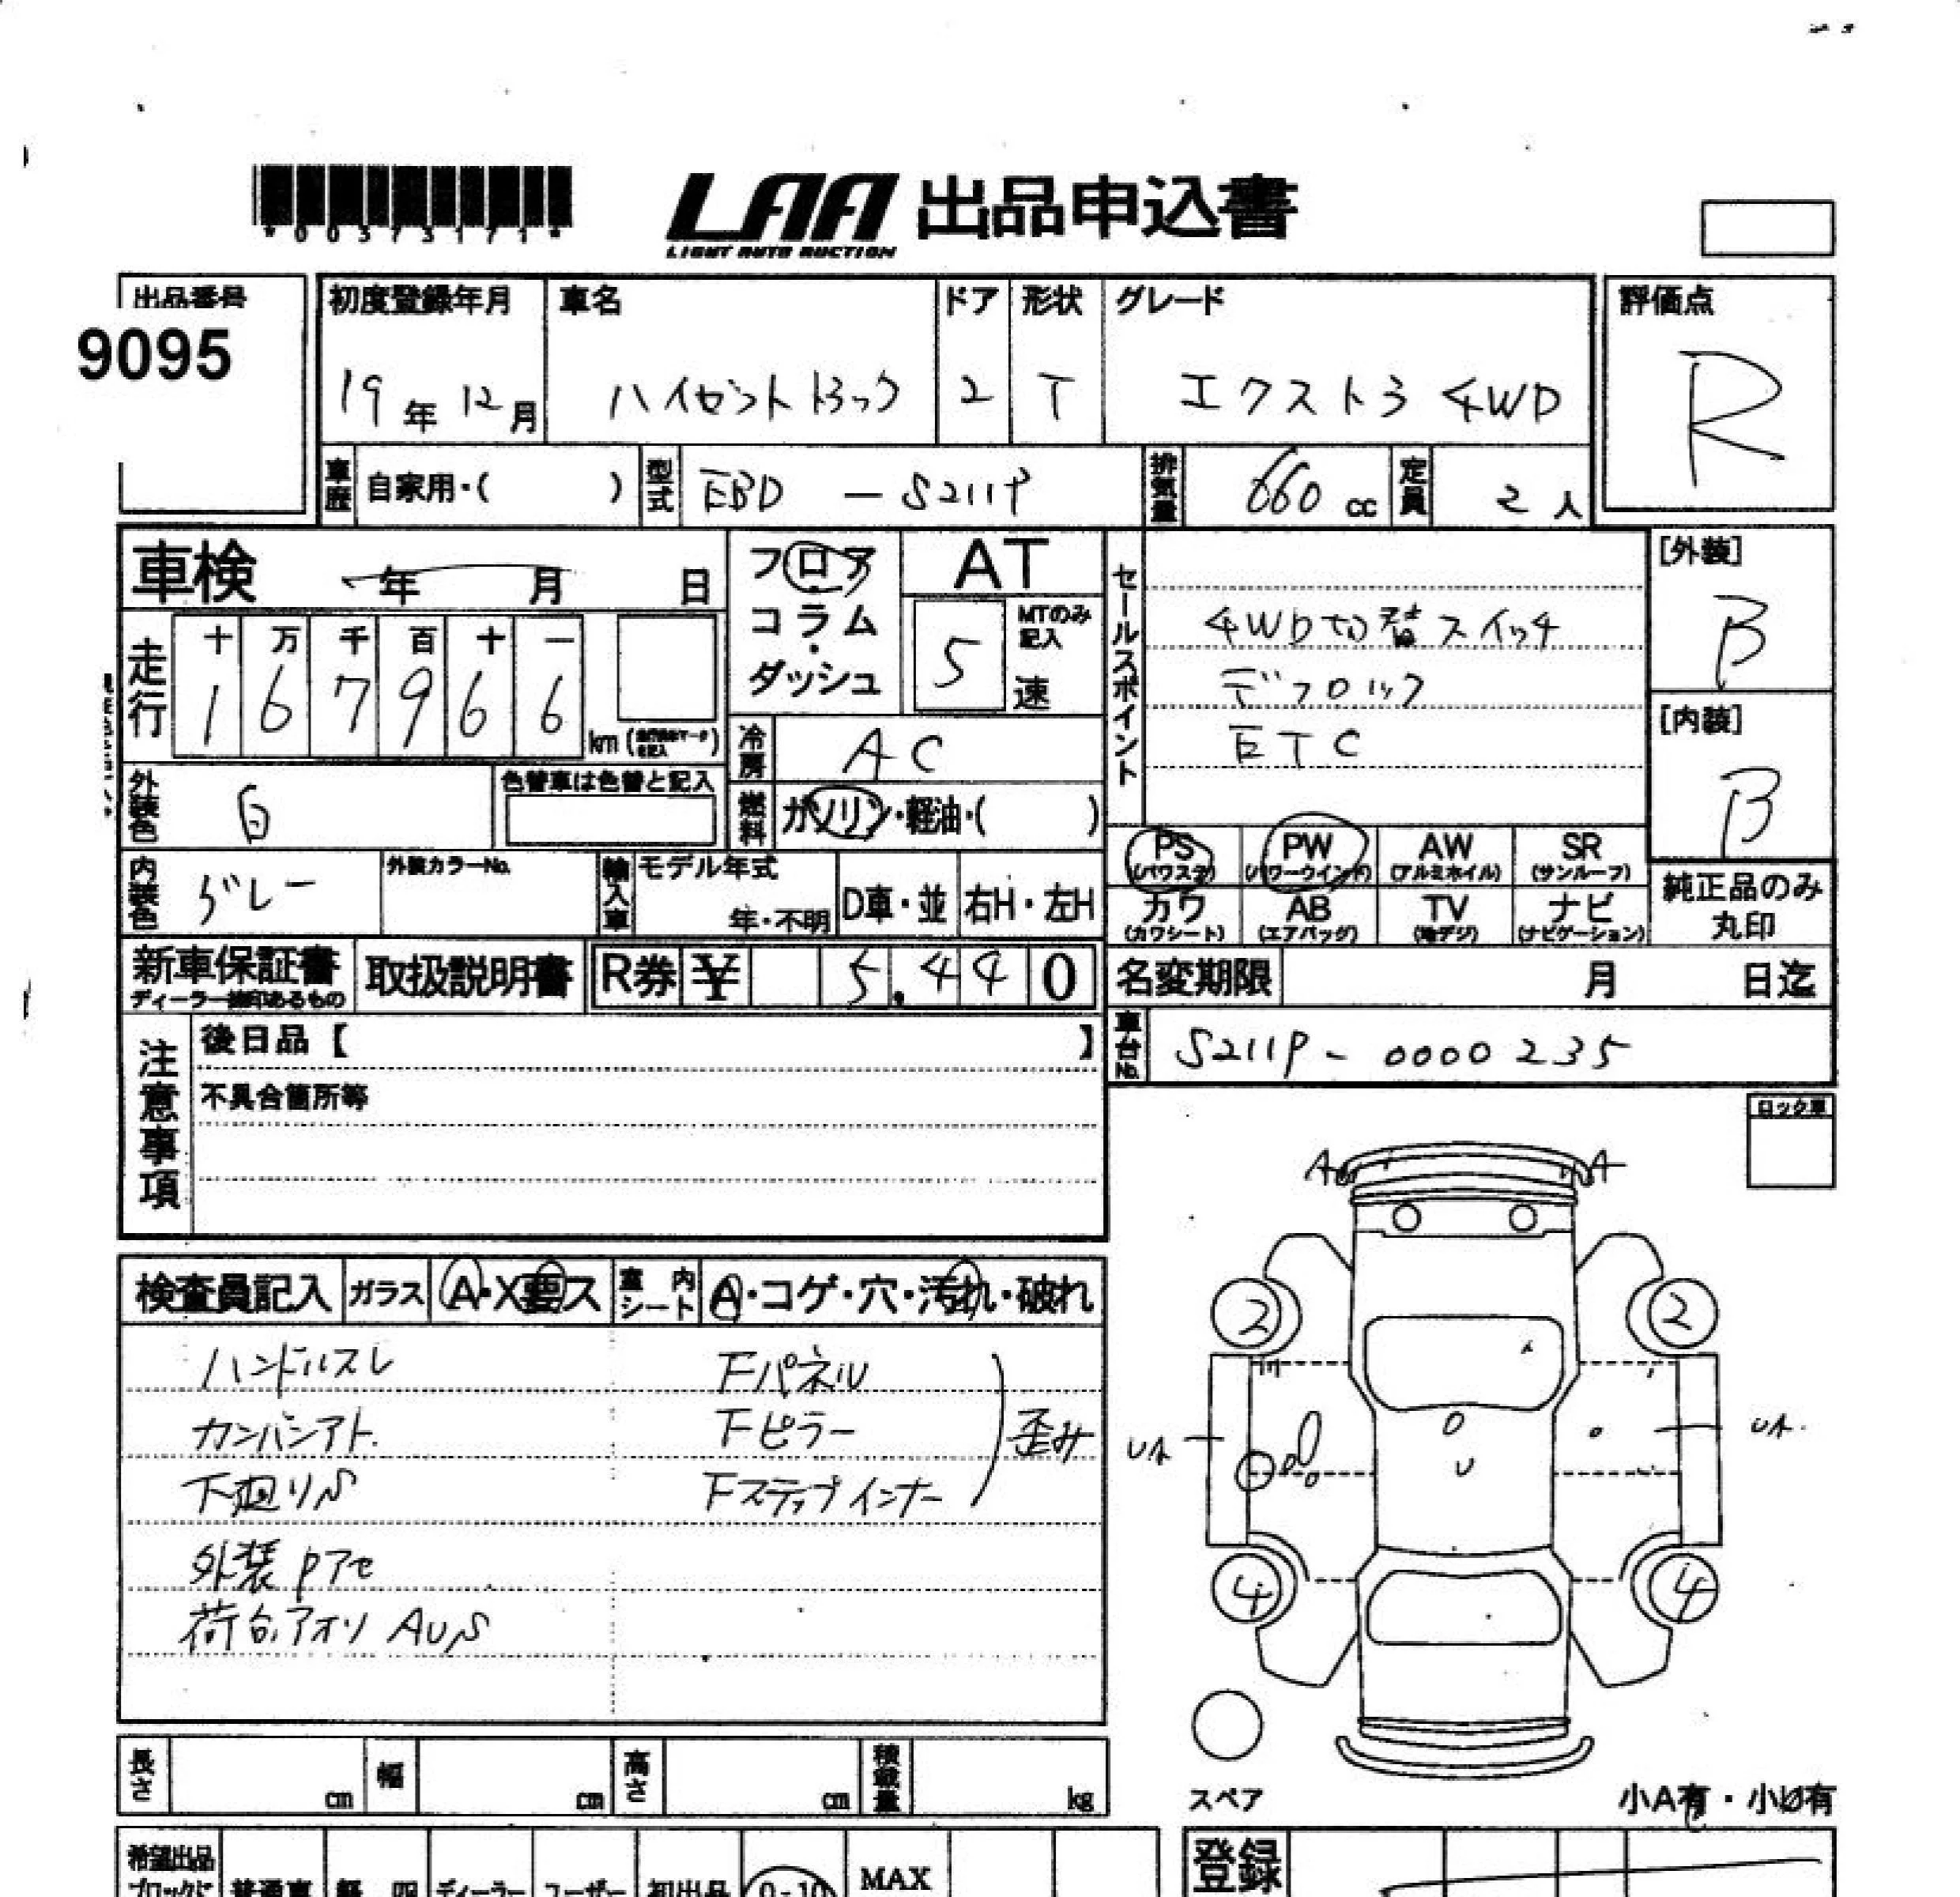 *00373171*
LAA 出品申込書
LIGHT AUTO AUCTION
出品番号
9095
初度登録年月 車名 ドア 形状 グレード 評価点
19年12月 ハイゼットトラック 2 T エクストラ 4WD R
車歴 自家用・( ) 型式 EBD-S211P 排気量 660cc 定員 2人
車検 年 月 日
フロア コラム・ダッシュ
AT
5 MTのみ記入 速
走行 十 万 千 百 十 一
1 6 7 9 6 6 km
冷房 AC
外装色 白 色替車は色替と記入
燃料 ガソリン・軽油・( )
内装色 グレー 外装カラーNo. 輸入車 モデル年式 年・不明 D車・並 右H・左H
セールスポイント
4WD切替スイッチ
デフロック
ETC
[外装]
B
[内装]
B
PS (パワステ) PW (パワーウインド) AW (アルミホイル) SR (サンルーフ)
カワ (カワシート) AB (エアバッグ) TV (地デジ) ナビ (ナビゲーション)
純正品のみ丸印
新車保証書 ディーラー捺印あるもの 取扱説明書 R券 ¥ 5,440
名変期限 月 日迄
車台No. S211P-0000235
注意事項
後日品【 】
不具合箇所等
ロック車
検査員記入 ガラス A・X要ス 室内シート A・コゲ・穴・汚れ・破れ
ハンドルスレ Fパネル
カンバンアト Fピラー 歪み
下廻りS Fステップインナー
外装Pアセ
荷台,アオリ AUS
A A
2 2
4 4
スペア
小A有・小U有
長さ cm 幅 cm 高さ cm 積載量 kg
希望出品
ブロックに 普通車 軽 四 ディーラー ユーザー 初出品 0-10 MAX
登録